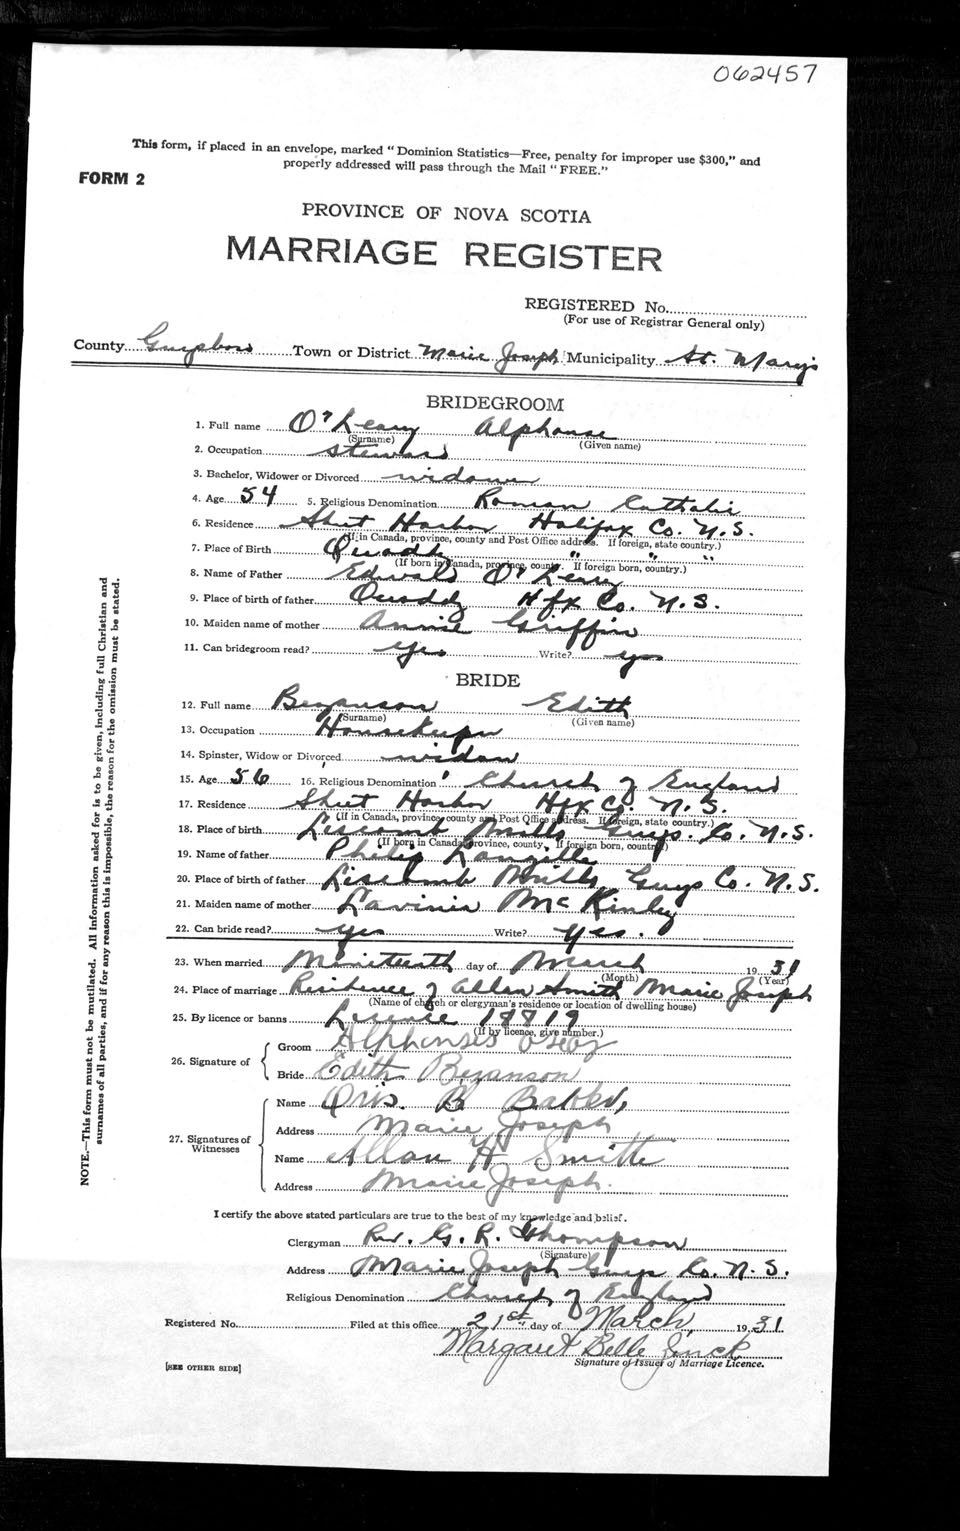 062457
This form, if placed in an envelope, marked "Dominion Statistics—Free, penalty for improper use $300," and
properly addressed will pass through the Mail "FREE."
FORM 2
PROVINCE OF NOVA SCOTIA
MARRIAGE REGISTER
REGISTERED No.
(For use of Registrar General only)
County Guysboro Town or District Marie Joseph Municipality St. Marys
BRIDEGROOM
1. Full name O'Leary Alphonse
(Surname) (Given name)
2. Occupation steward
3. Bachelor, Widower or Divorced widower
4. Age 54 5. Religious Denomination Roman Catholic
6. Residence Sheet Harbor Halifax Co. N.S.
(If in Canada, province, county and Post Office address. If foreign, state country.)
7. Place of Birth Quoddy " " "
(If born in Canada, province, county. If foreign born, country.)
8. Name of Father Edward O'Leary
9. Place of birth of father Quoddy Hfx Co. N.S.
10. Maiden name of mother Annie Griffin
11. Can bridegroom read? yes Write? yes
BRIDE
12. Full name Bezanson Edith
(Surname) (Given name)
13. Occupation Housekeeper
14. Spinster, Widow or Divorced widow
15. Age 56 16. Religious Denomination Church of England
17. Residence Sheet Harbor Hfx Co. N.S.
(If in Canada, province county and Post Office address. If foreign, state country.)
18. Place of birth Liscomb Mills Guys. Co. N.S.
(If born in Canada, province, county, If foreign born, country)
19. Name of father Philip Langille
20. Place of birth of father Liscomb Mills Guys Co. N.S.
21. Maiden name of mother Lavinia McKinley
22. Can bride read? yes Write? yes.
23. When married Nineteenth day of March 1931
(Month) (Year)
24. Place of marriage Residence of Allan Smith Marie Joseph
(Name of church or clergyman's residence or location of dwelling house)
25. By licence or banns Lisence 18819
(If by licence, give number.)
26. Signature of
Groom Alphonses
Bride Edith Bezanson
27. Signatures of Witnesses
Name B
Address Marie Joseph
Name Allan H Smith
Address Marie Joseph.
I certify the above stated particulars are true to the best of my knowledge and belief.
Clergyman Rev. G. R. Thompson
(Signature)
Address Marie Joseph Guys Co. N.S.
Religious Denomination Church of England
Registered No. Filed at this office 21st day of March, 1931
Margaret Belle Jinck
Signature of Issuer of Marriage Licence.
[SEE OTHER SIDE]
NOTE.—This form must not be mutilated. All information asked for is to be given, including full Christian and
surnames of all parties, and if for any reason this is impossible, the reason for the omission must be stated.